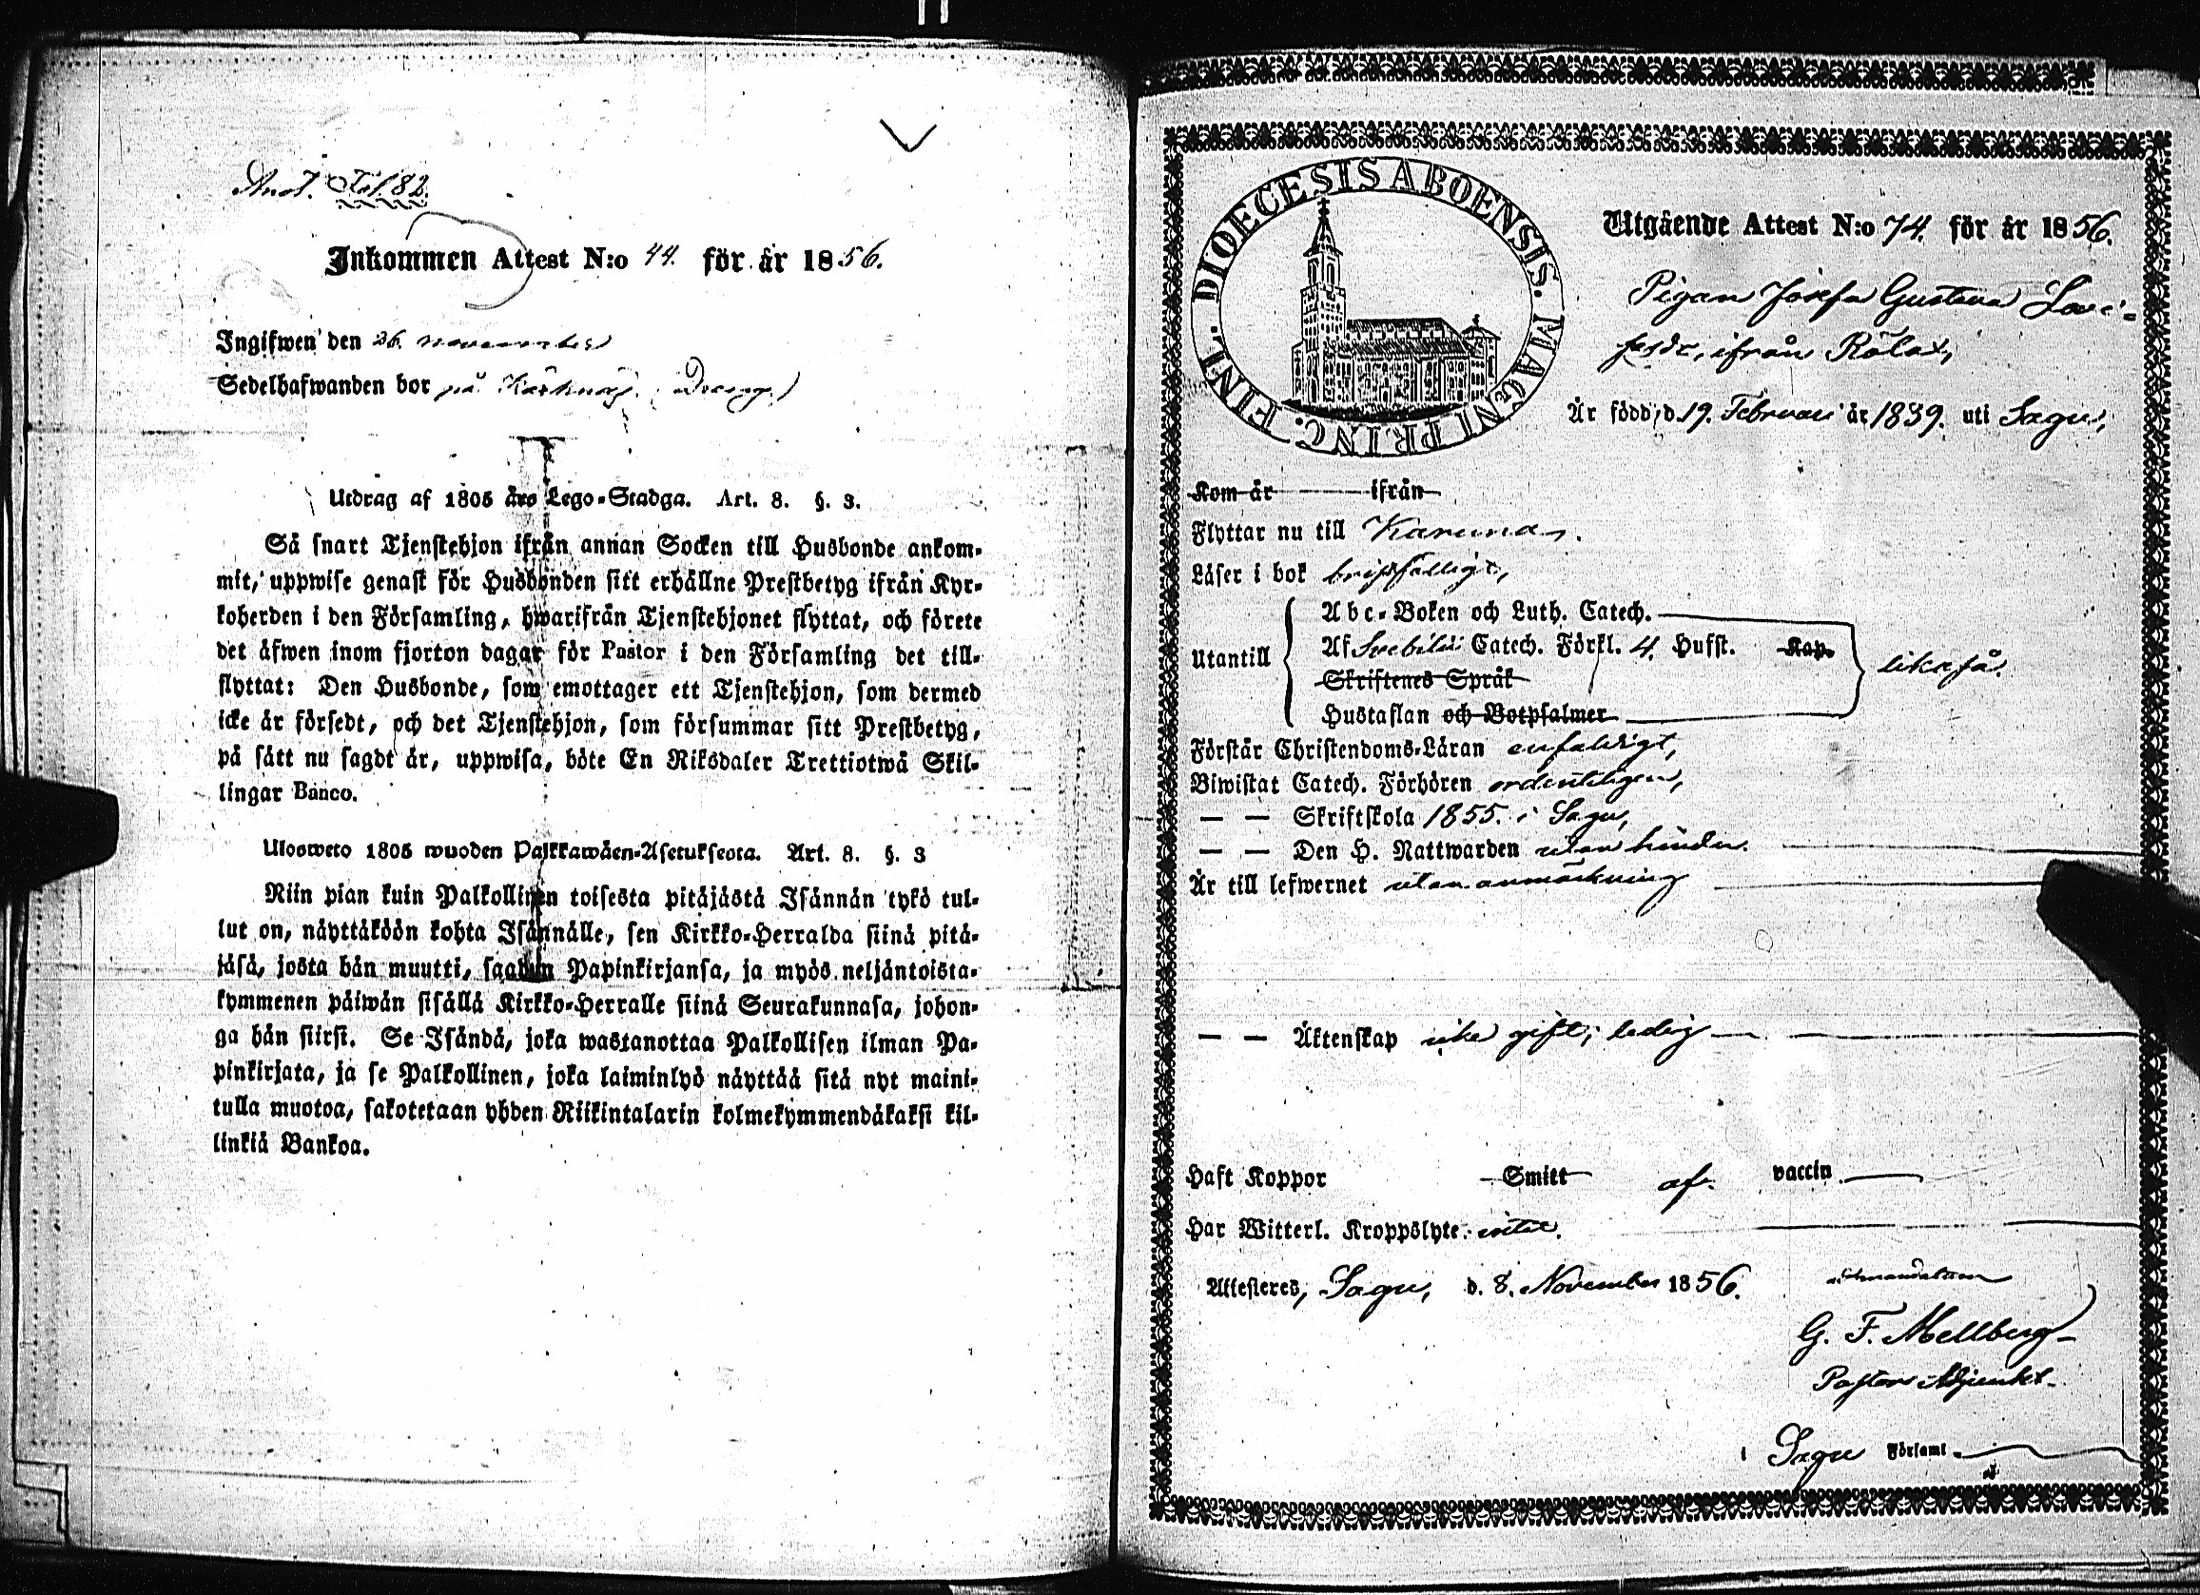 Anot. Fol. 82.
Inkommen Attest N:o 44. för år 1856.
Ingifwen den 26 november
Sedelhafwanden bor på Karknäs. (Dreng.)
Utdrag af 1805 års Lego-Stadga. Art. 8. §. 3.
Så snart Tjenstehjon ifrån annan Socken till Husbonde ankom-
mit, uppwise genast för Husbonden sitt erhållne Prestbetyg ifrån Kyr-
koherden i den Församling, hwarifrån Tjenstehjonet flyttat, och förete
det äfwen inom fjorton dagar för Pastor i den Församling det till-
flyttat: Den Husbonde, som emottager ett Tjenstehjon, som dermed
icke är försedt, och det Tjenstehjon, som försummar sitt Prestbetyg,
på sätt nu sagdt är, uppwisa, böte En Riksdaler Trettiotwå Skil-
lingar Banco.
Ulosweto 1805 wuoden Palkkawäen-Asetuksesta. Art. 8. §. 3
Niin pian kuin Palkollinen toisesta pitäjästä Isännän tykö tul-
lut on, näyttäköön kohta Isännälle, sen Kirkko-Herralda siinä pitä-
jäsä, josta hän muutti, saadun Papinkirjansa, ja myös neljäntoista-
kymmenen päiwän sisällä Kirkko-Herralle siinä Seurakunnasa, johon-
ga hän siirsi. Se Isändä, joka wastanottaa Palkollisen ilman Pa-
pinkirjata, ja se Palkollinen, joka laiminlyö näyttää sitä nyt maini-
tulla muotoa, sakotetaan yhden Riikintalarin kolmekymmendäkaksi kil-
linkiä Bankoa.
DIOECESIS ABOENSIS. MAGNI PRINC. FINL.
Utgående Attest N:o 74. för år 1856.
Pigan Josefa Gustava Lovi-
sasdr, ifrån Rölax,
Är född d. 19. Februari år 1839. uti Sagu,
Kom år ifrån
Flyttar nu till Karuna.
Läser i bok bristfälligt,
Abc-Boken och Luth. Catech.
Utantill Af Svebilii Catech. Förkl. 4. Hufst. Kap. likaså.
Skriftenes Språk
Hustaflan och Botpsalmer
Förstår Christendoms-Läran enfaldigt,
Biwistat Catech. Förhören ordentligen,
— — Skriftskola 1855. i Sagu,
— — Den H. Nattwarden utan hinder.
Är till lefwernet utan anmärkning
— — Äktenskap icke gift; ledig
Haft Koppor Smitt af vaccin
Har Witterl. Kroppslyte intet.
Attesteres, Sagu, d. 8. November 1856.
G. F. Mellberg
Pastors Adjunkt
i Sagu Församl.